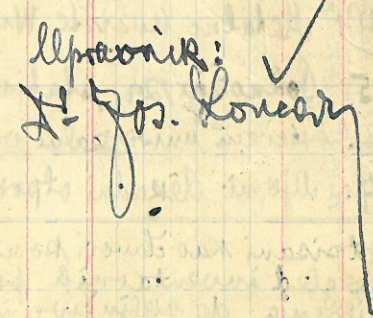 Upravnik:
Dr Jos. Lončar